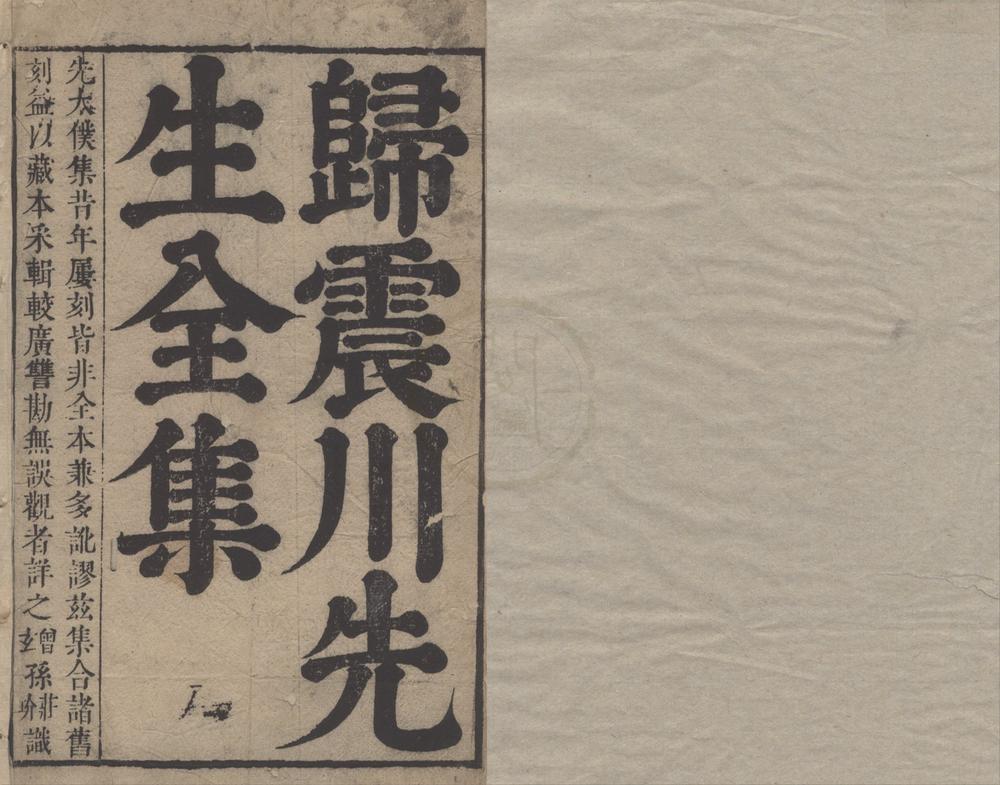 歸震川先
生全集
先太僕集昔年屢刻皆非全本兼多訛謬茲集合諸舊
刻益以藏本采輯較廣讐勘無誤觀者詳之曾孫莊玠識